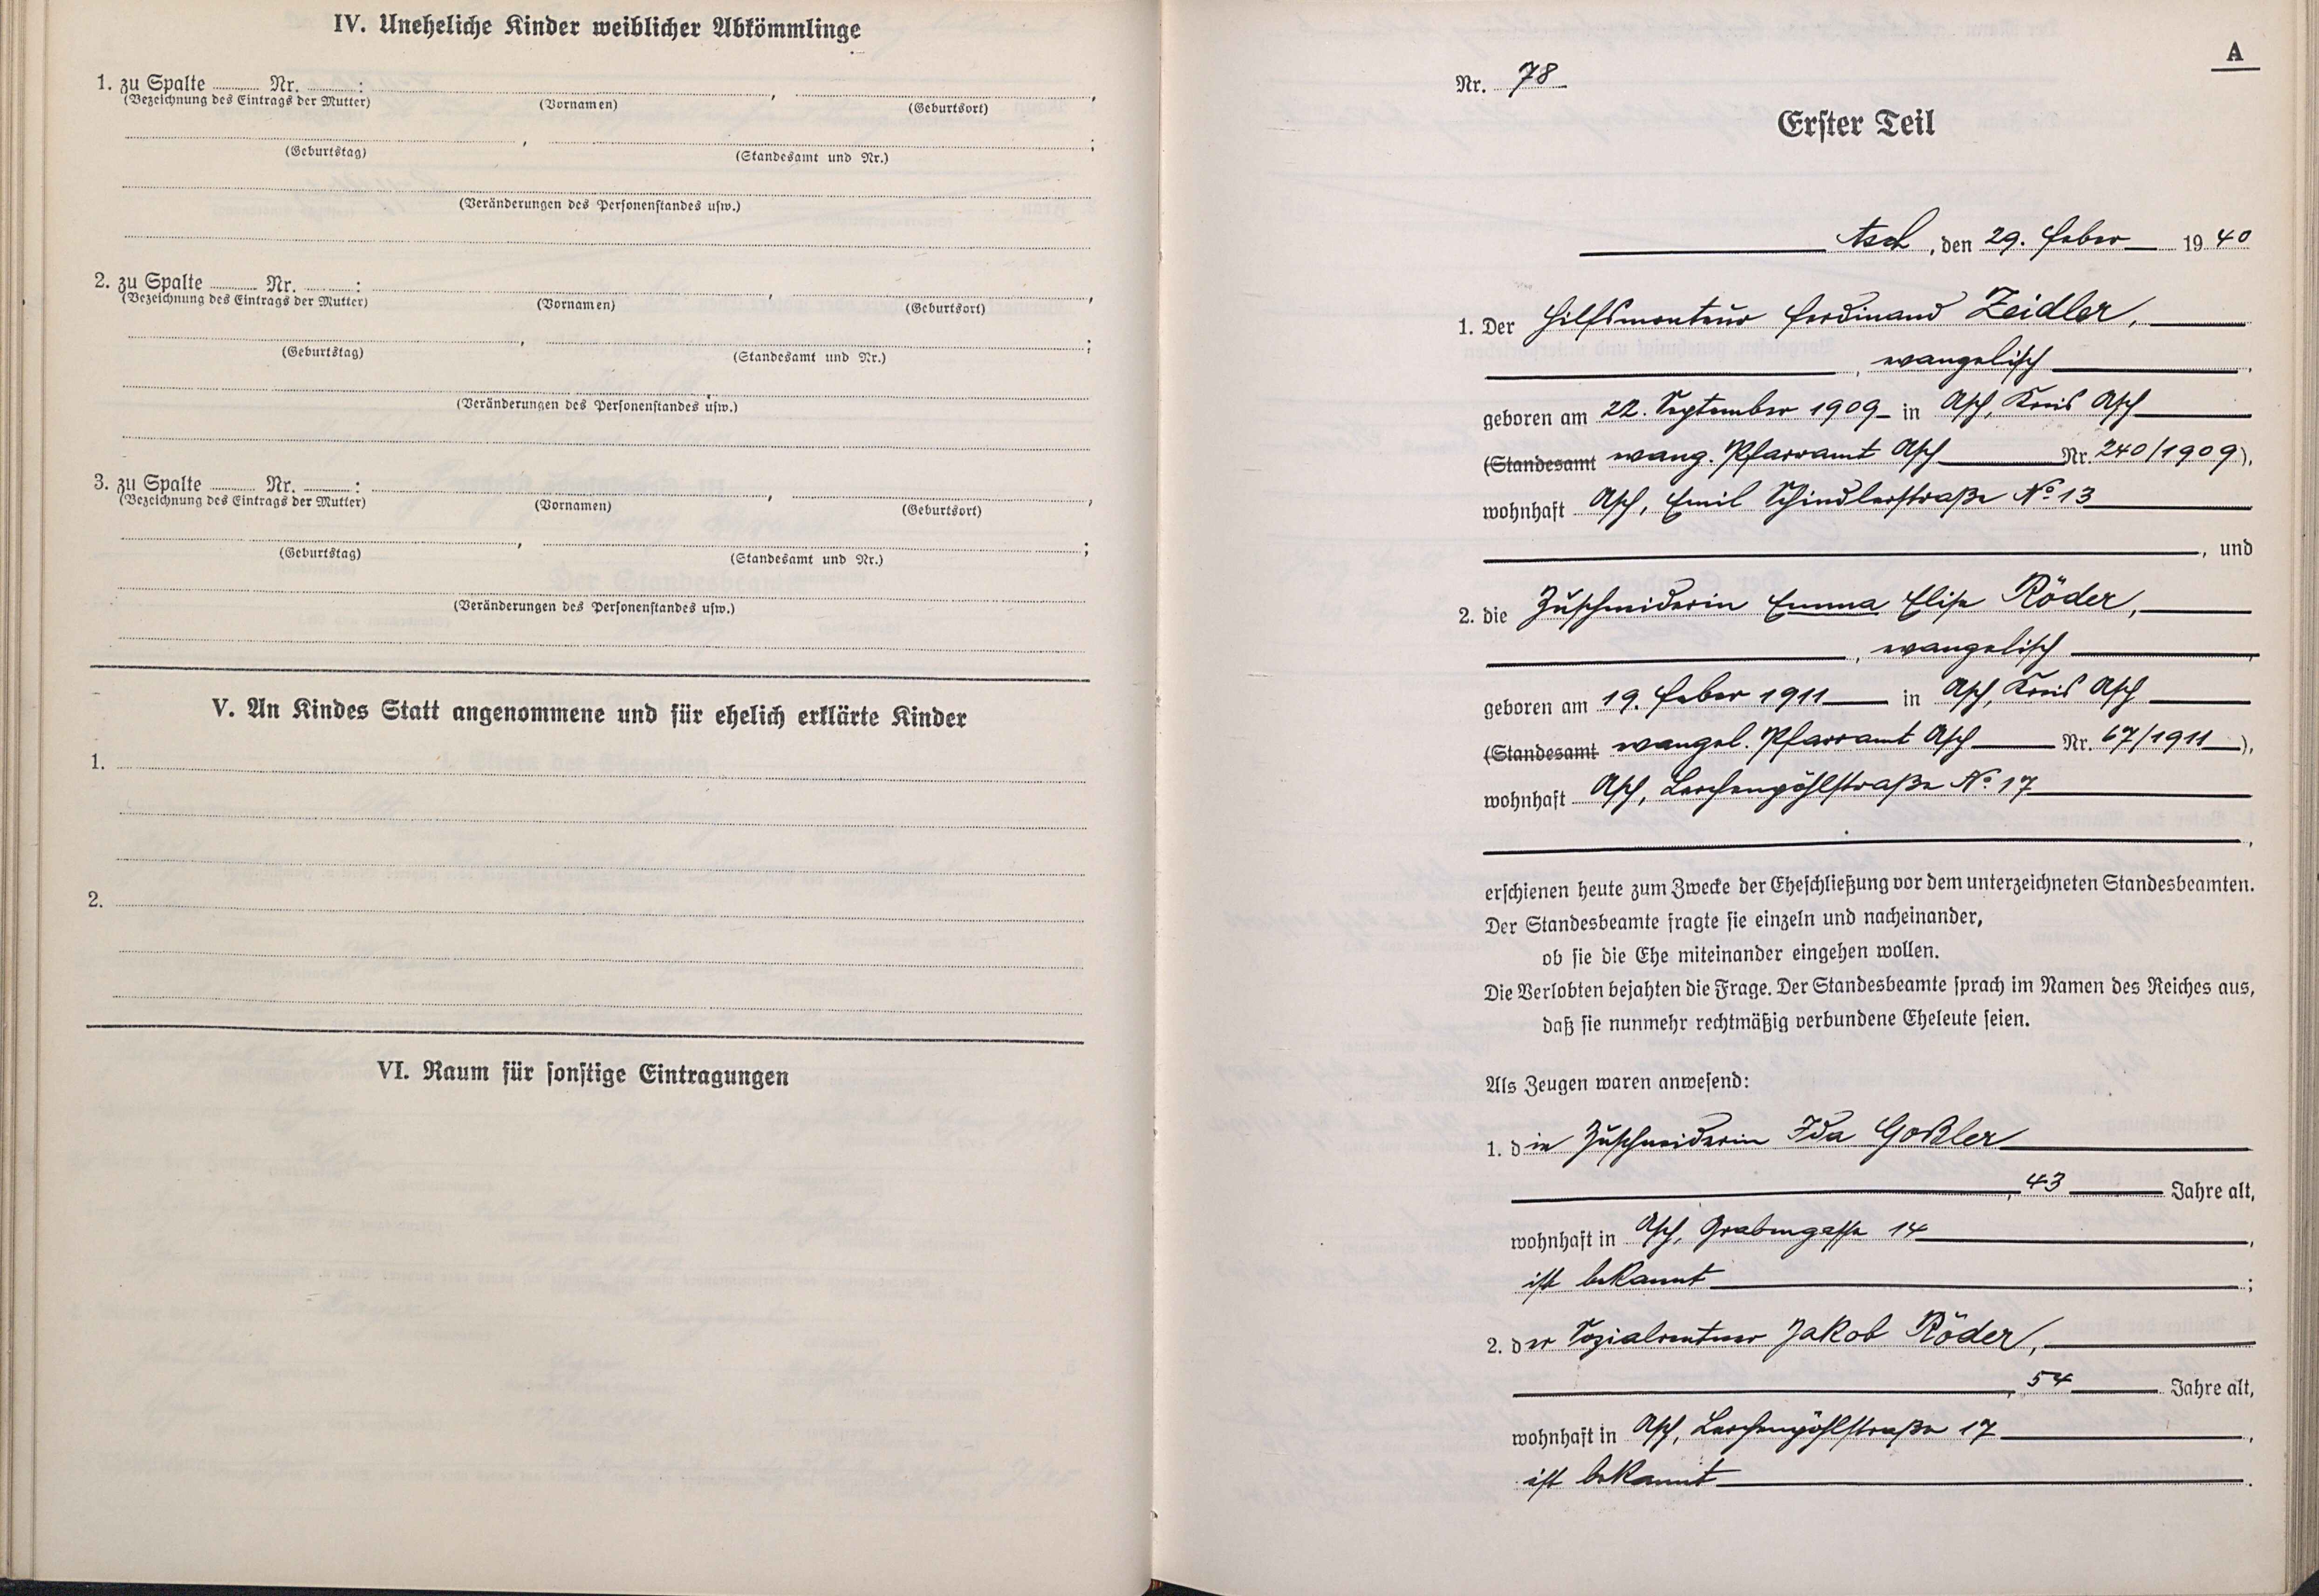 IV. Uneheliche Kinder weiblicher Abkömmlinge
1. zu Spalte ........ Nr. ........:
(Bezeichnung des Eintrags der Mutter) (Vornamen) (Geburtsort)
(Geburtstag) (Standesamt und Nr.)
(Veränderungen des Personenstandes usw.)
2. zu Spalte ........ Nr. ........:
(Bezeichnung des Eintrags der Mutter) (Vornamen) (Geburtsort)
(Geburtstag) (Standesamt und Nr.)
(Veränderungen des Personenstandes usw.)
3. zu Spalte ........ Nr. ........:
(Bezeichnung des Eintrags der Mutter) (Vornamen) (Geburtsort)
(Geburtstag) (Standesamt und Nr.)
(Veränderungen des Personenstandes usw.)
V. An Kindes Statt angenommene und für ehelich erklärte Kinder
1.
2.
VI. Raum für sonstige Eintragungen
A
Nr. 78
Erster Teil
Asch, den 29. Feber 1940
1. Der Hilfsmonteur Ferdinand Zeidler,
, evangelisch,
geboren am 22. September 1909 in Asch, Kreis Asch
(Standesamt evang. Pfarramt Asch Nr. 240/1909),
wohnhaft Asch, Emil Schindlerstraße No 13
, und
2. die Zuschneiderin Emma Elise Röder,
, evangelisch,
geboren am 19. Feber 1911 in Asch, Kreis Asch
(Standesamt evangel. Pfarramt Asch Nr. 67/1911),
wohnhaft Asch, Lerchenpöhlstraße No. 17
,
erschienen heute zum Zwecke der Eheschließung vor dem unterzeichneten Standesbeamten.
Der Standesbeamte fragte sie einzeln und nacheinander,
ob sie die Ehe miteinander eingehen wollen.
Die Verlobten bejahten die Frage. Der Standesbeamte sprach im Namen des Reiches aus,
daß sie nunmehr rechtmäßig verbundene Eheleute seien.
Als Zeugen waren anwesend:
1. die Zuschneiderin Ida Goßler
, 43 Jahre alt,
wohnhaft in Asch, Grabengasse 14,
ist bekannt;
2. der Sozialrentner Jakob Röder,
, 54 Jahre alt,
wohnhaft in Asch, Lerchenpöhlstraße 17,
ist bekannt.